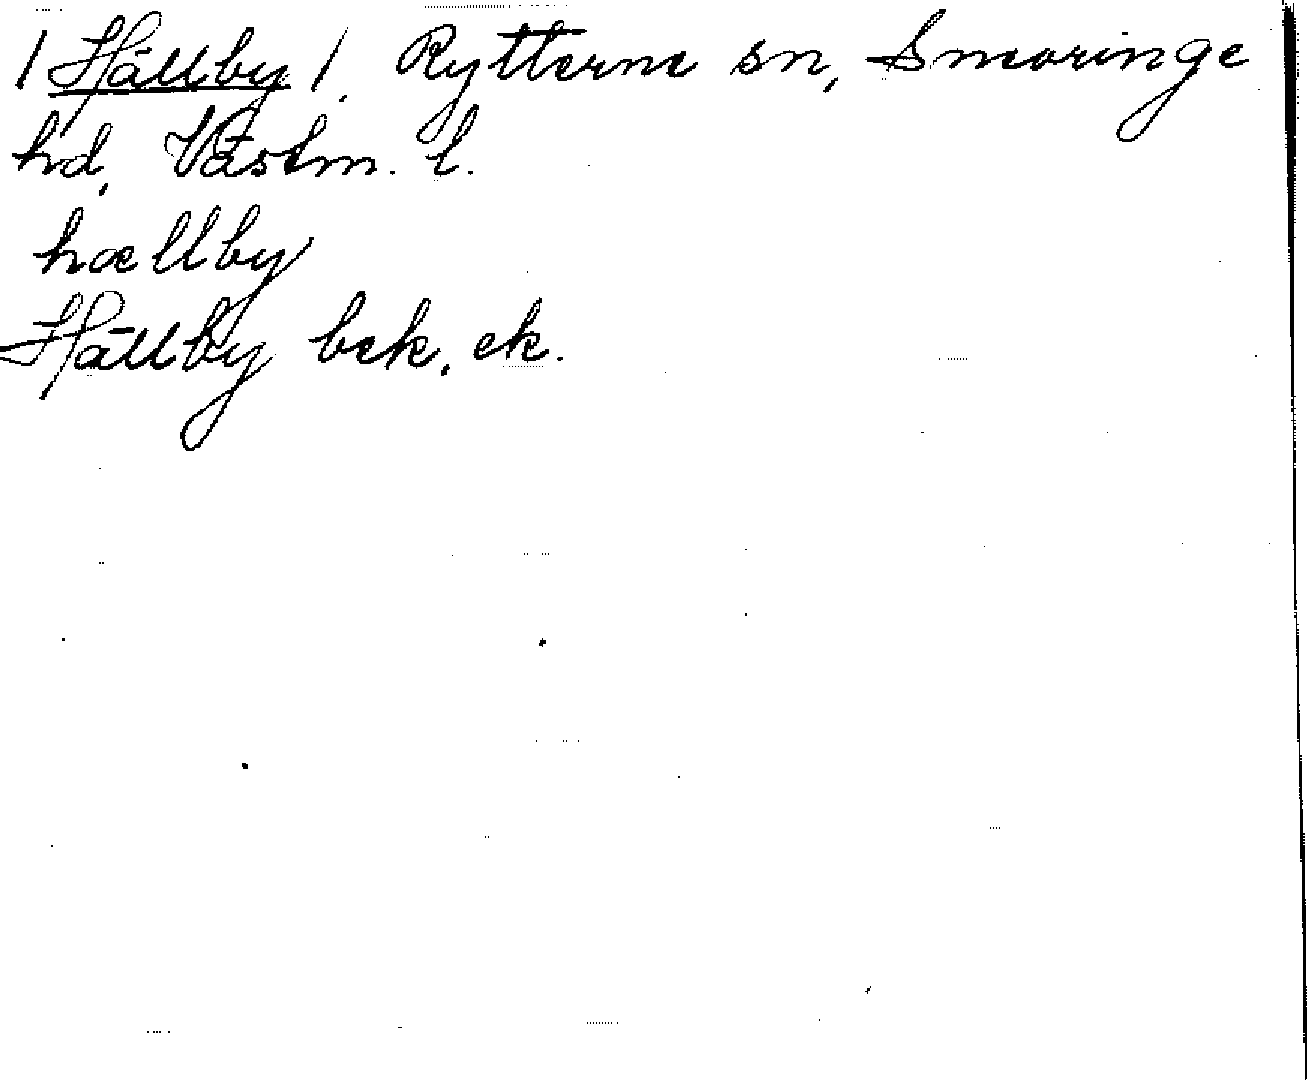 /Hällby/, Rytterne sn, Snevringe
hd, Västm. l.
hællby
Hällby bek. ek.